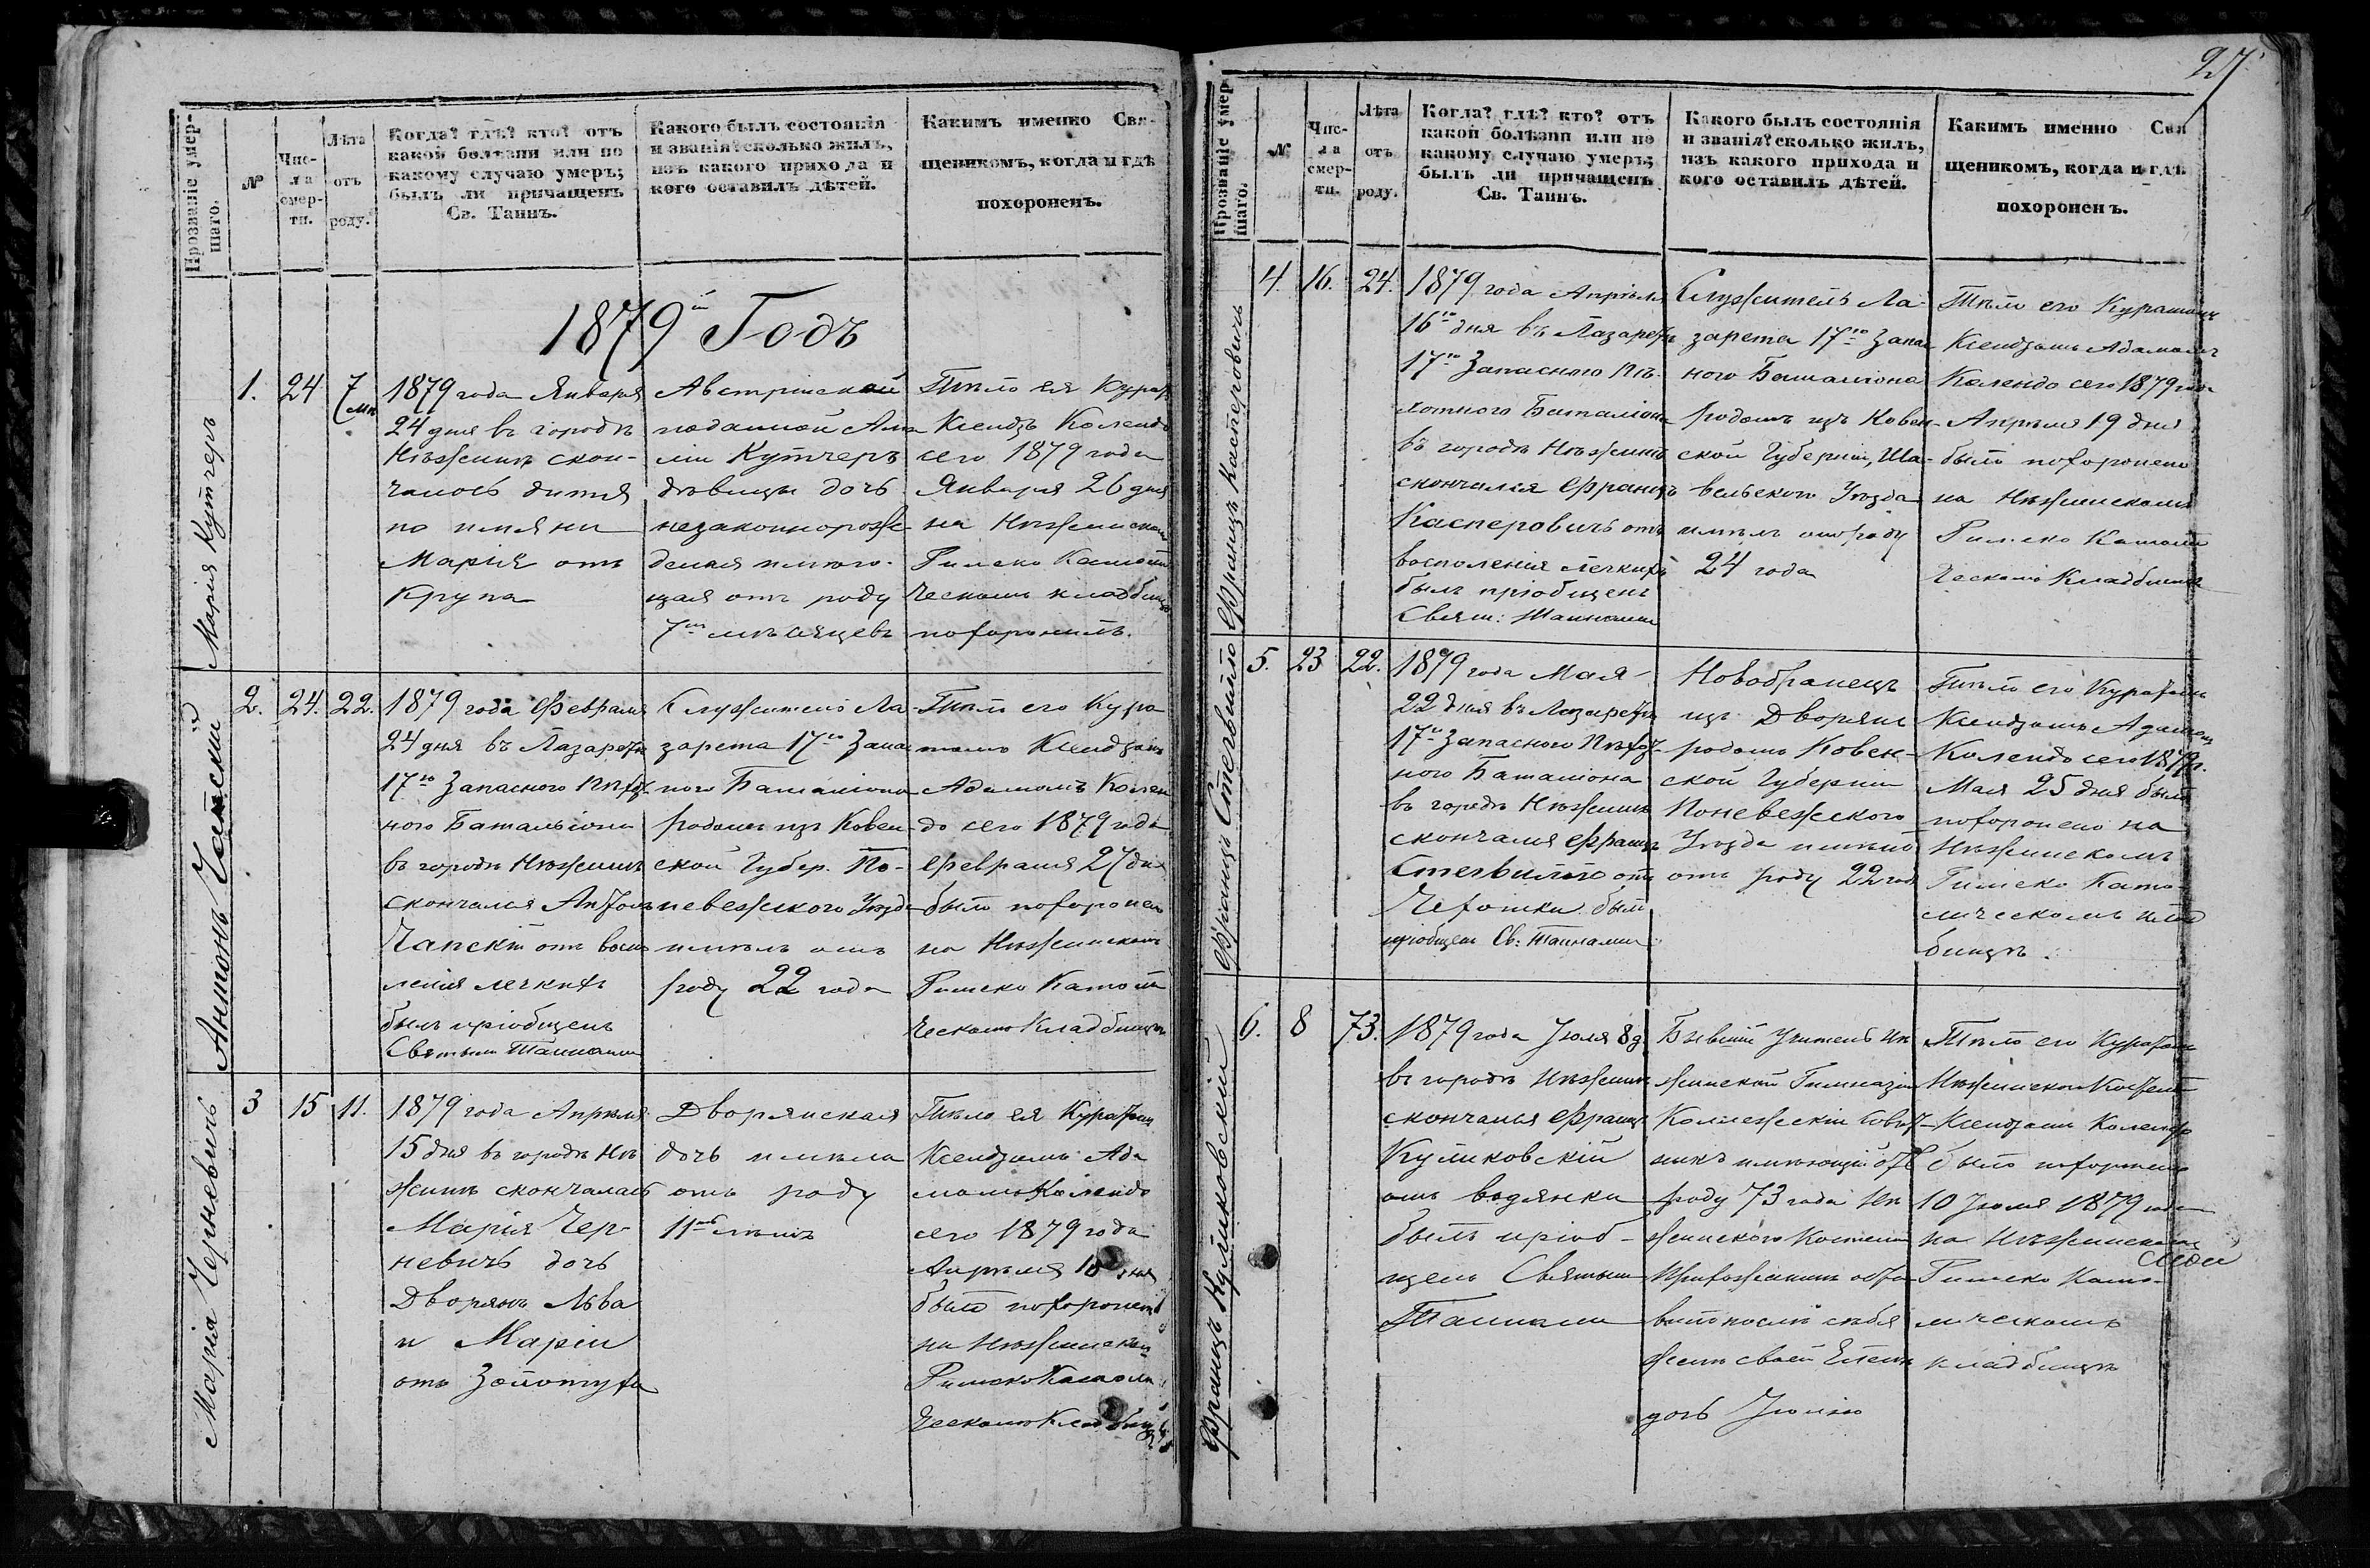 Прозваніе умер-
шаго.
№
Чис-
ла
смер-
ти.
Лѣта
отъ
роду.
Когда? гдѣ? кто? отъ
какой болѣзни или по
какому случаю умеръ;
былъ ли причащенъ
Св. Таинъ.
Какого былъ состоянія
и званія? сколько жилъ,
изъ какого прихода и
кого оставилъ дѣтей.
Какимъ именно Свя-
щеникомъ, когда и гдѣ
похороненъ.
1879й Годъ
Марія Кутчеръ
1.
24
7
1879 года Января
24 дня въ городѣ
Нѣжинѣ скон-
чалось дитя
по имяни
Марія отъ
Крупа
Австрійской
поданной Ама
ліи Кутчеръ
дѣвицы дочь
незаконнорож-
денная имѣю-
щая отъ роду
7ть мѣсяцевъ
Тѣло ея Курат
Ксендзъ Колендо
сего 1879 года
Января 26 дня
на Нѣжинском
Римско Католи
ческомъ кладбищѣ
похоронилъ.
Антонъ Чапскій
2.
24.
22.
1879 года Февраля
24 дня въ Лазаретѣ
17го Запасного Пѣхот-
ного Баталіона
въ городѣ Нѣжинѣ
скончался Антонъ
Чапскій отъ воспа
ленія легкихъ
былъ пріобщенъ
Святыми Тайнами
Служитель Ла-
зарета 17го Запас
ного Баталіона
родомъ изъ Ковен-
ской Губер. По-
невежского Уѣзда
имѣлъ отъ
роду 22 года
Тѣло его Кура
томъ Ксендзомъ
Адамомъ Колен
до сего 1879 года
Февраля 27 дня
было похоронено
на Нѣжинскомъ
Римско Католи
ческомъ Кладбищѣ
Марія Черневичъ
3
15
11.
1879 года Апрѣля
15 дня въ городѣ Нѣ
жинѣ скончалась
Марія Чер-
невичъ дочь
Дворянъ Льва
и Маріи
отъ Золотухи
Дворянская
дочь имѣла
отъ роду
11ть лѣтъ
Тѣло ея Куратомъ
Ксендзомъ Ада
момъ Колендо
сего 1879 года
Апрѣля дня
было похоронено
на Нѣжинском
Римско Католи
ческомъ Кладбищѣ
27.
Прозваніе умер-
шаго.
№
Чис-
ла
смер-
ти.
Лѣта
отъ
роду.
Когда? гдѣ? кто? отъ
какой болѣзни или по
какому случаю умеръ;
былъ ли причащенъ
Св. Таинъ.
Какого былъ состоянія
и званія? сколько жилъ,
изъ какого прихода и
кого оставилъ дѣтей.
Какимъ именно Свя
щеникомъ, когда и гдѣ
похороненъ.
Францъ Касперовичъ
4.
16.
24.
1879 года Апрѣля
16го дня въ Лазаретѣ
17го Запасного Пѣ-
хотного Баталіона
въ городѣ Нѣжинѣ
скончался Францъ
Касперовичъ отъ
воспаленія легкихъ
былъ пріобщенъ
Святи: Тайнами
Служитель Ла-
зарета 17го Запас
ного Баталіона
родомъ изъ Ковен-
ской Губерніи, Ша-
вельского Уѣзда
имѣлъ отъ роду
24 года
Тѣло его Куратомъ
Ксендзомъ Адамомъ
Колендо сего 1879 года
Апрѣля 19 дня
было похоронено
на Нѣжинскомъ
Римско Католи
ческомъ Кладбищѣ
5.
23
22.
1879 года Мая
22 дня въ Лазаретѣ
17го Запасного Пѣхот-
ного Баталіона
въ городѣ Нѣжинѣ
скончался Францъ
отъ
Чахотки былъ
пріобщенъ Св: Тайнами
Новобранецъ
изъ Дворянъ
родомъ Ковен-
ской Губерніи
Поневежского
Уѣзда имѣлъ
отъ роду 22 год
Тѣло его Куратомъ
Ксендзомъ Адамомъ
Колендо сего 1879 г.
Мая 25 дня было
похоронено на
Нѣжинскомъ
Римско Като
лическомъ клад
бищѣ.
Францъ Куликовскій
6.
8
73.
1879 года Іюля 8 д.
въ городѣ Нѣжинѣ
скончался Францъ
Куликовскій
отъ водянки
былъ пріоб-
щенъ Святыми
Тайнами
Бывшій Учитель Нѣ
жинской Гимназіи
Коллежскій Совѣт-
никъ имѣющій отъ
роду 73 года Нѣ
жинского Костела
Прихожанинъ оста
вилъ послѣ себя
жену свою Елену
дочь Юлію
Тѣло его Куратомъ
Нѣжинскаго Костела
Ксендзомъ Колендо
было похоронено
10 Іюля 1879 года
на Нѣжинскомъ
Римско Като-
лическомъ
кладбищѣ